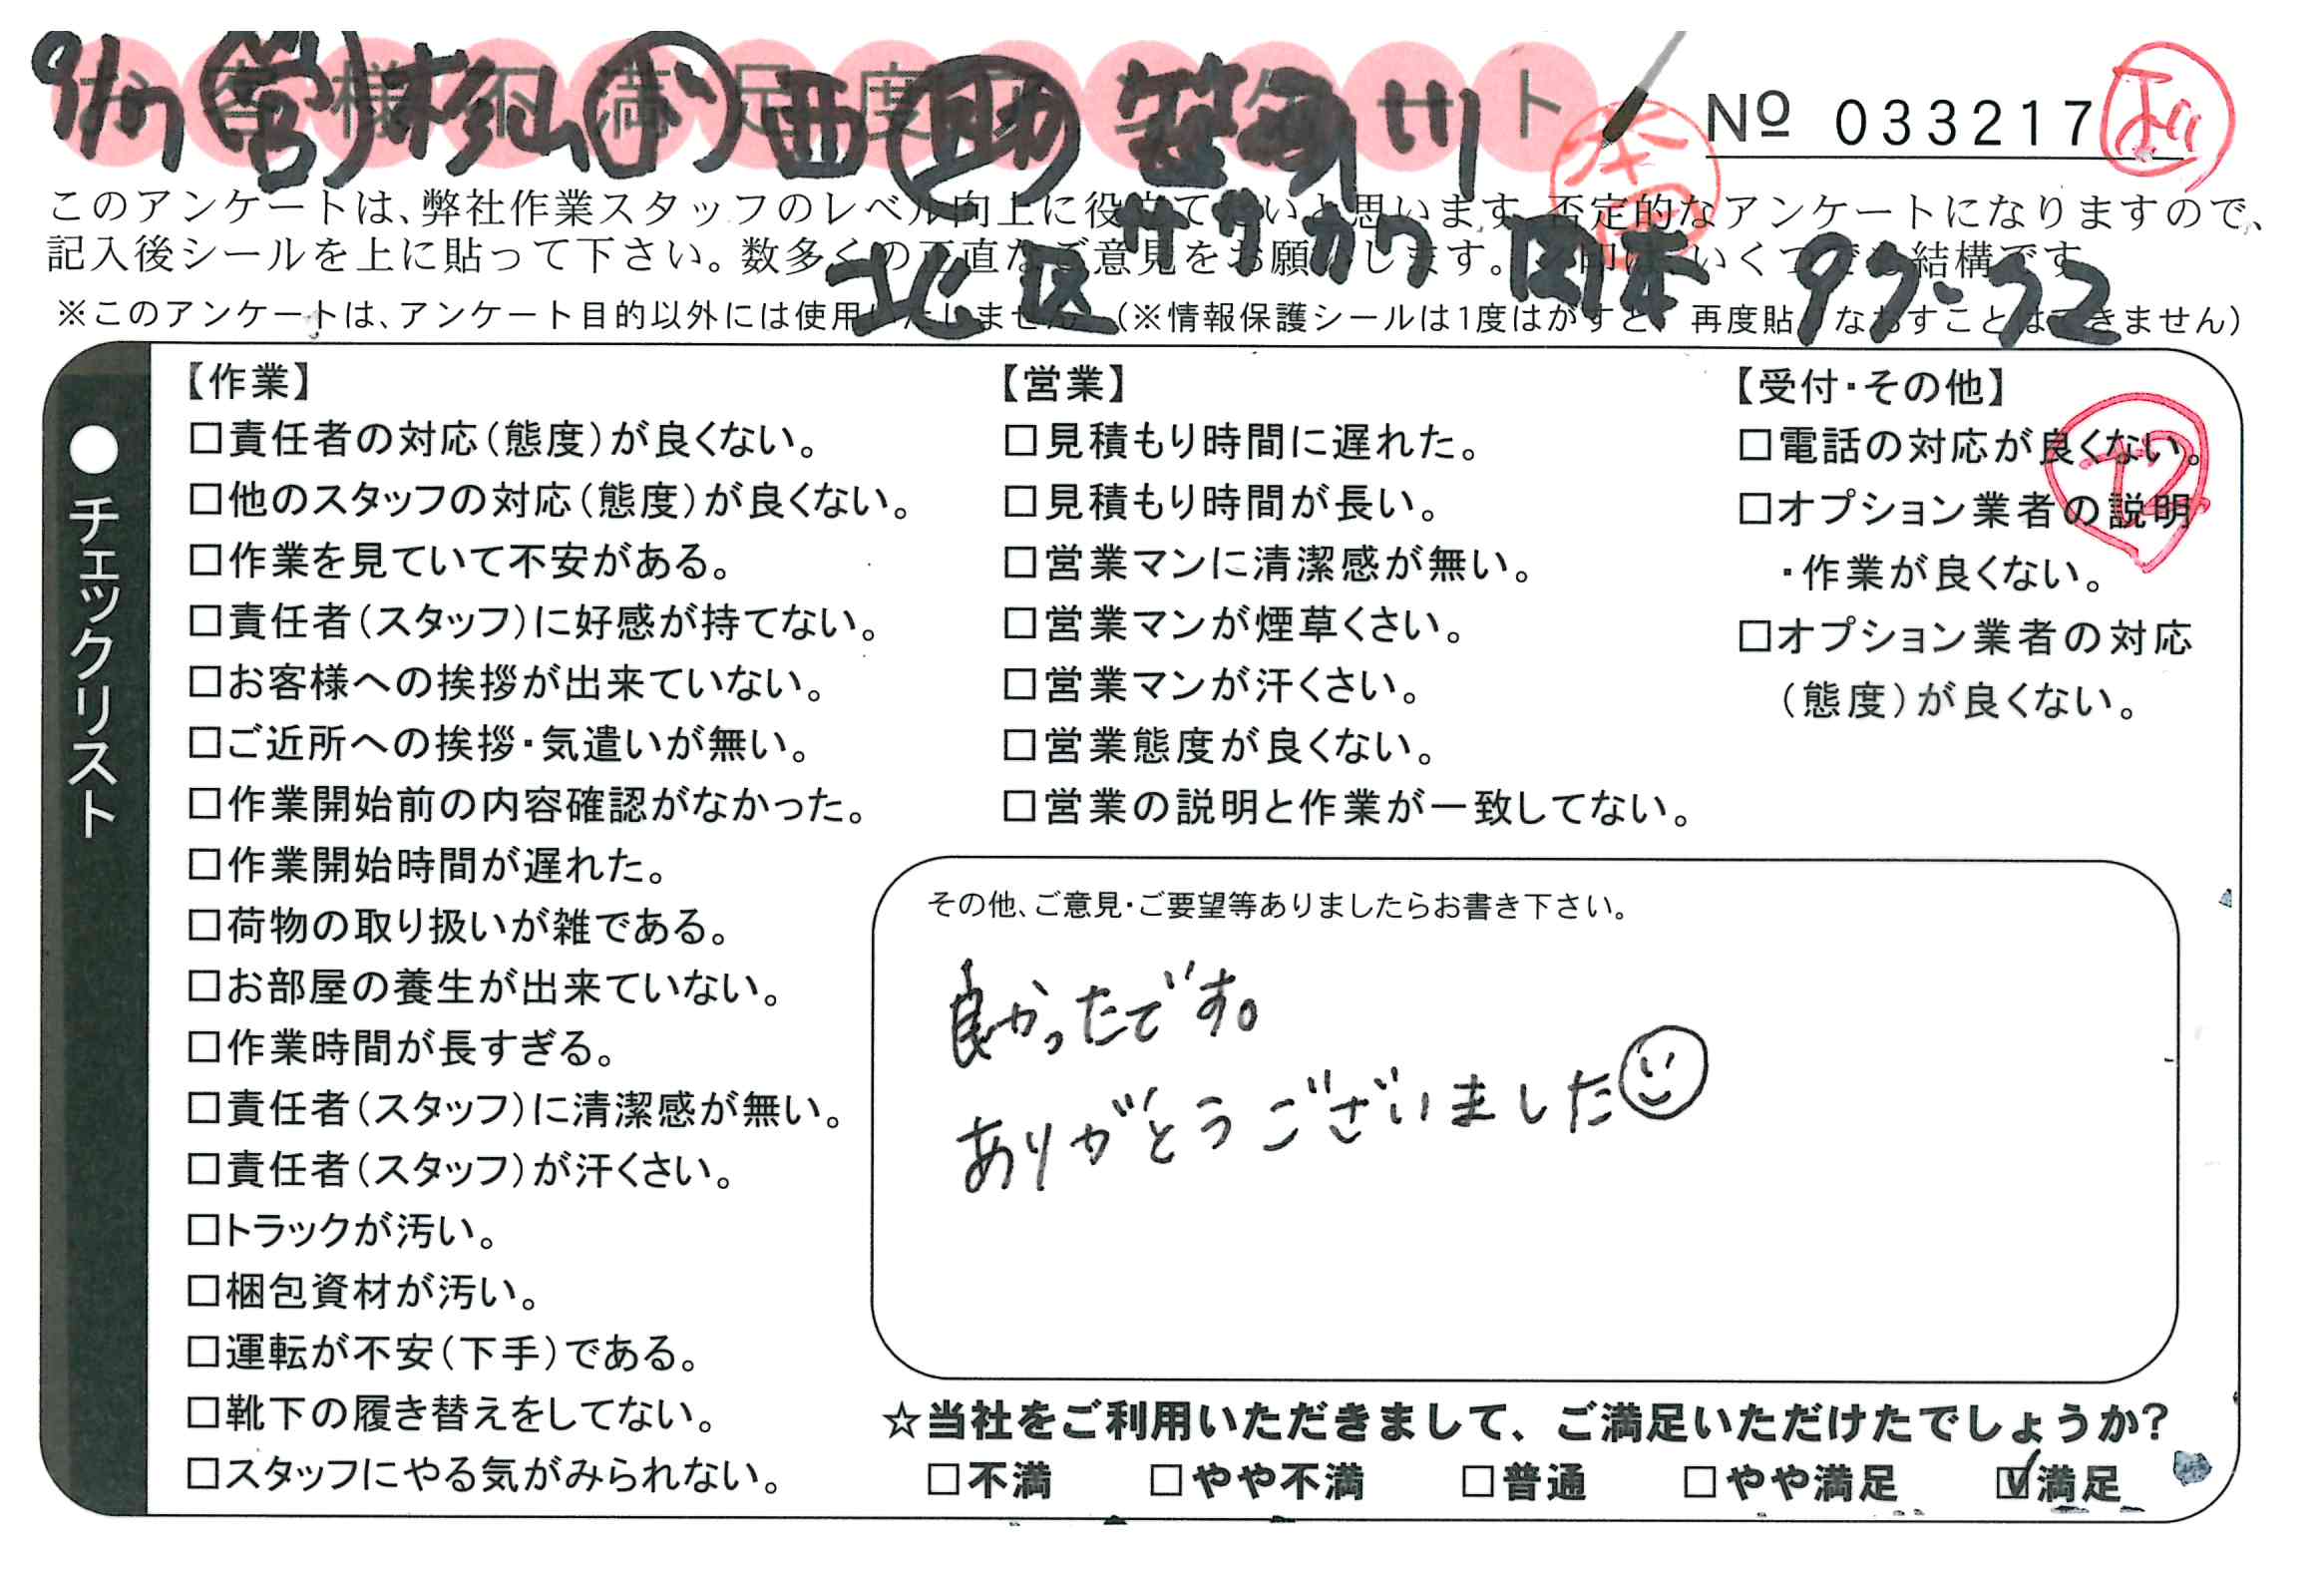 お客様不満足度アンケート
9/17 営 杉山 小 西 助 笹川
№ 033217
このアンケートは、弊社作業スタッフのレベル向上に役立てたいと思います。否定的なアンケートになりますので、
記入後シールを上に貼って下さい。数多くの正直なご意見をお願いします。
いくつでも結構です。
ササガワ
北区
岡本
97-72
※このアンケートは、アンケート目的以外には使用いたしません。(※情報保護シールは1度はがすと、再度貼りなおすことはできません)
●チェックリスト
【作業】
□責任者の対応(態度)が良くない。
□他のスタッフの対応(態度)が良くない。
□作業を見ていて不安がある。
□責任者(スタッフ)に好感が持てない。
□お客様への挨拶が出来ていない。
□ご近所への挨拶・気遣いが無い。
□作業開始前の内容確認がなかった。
□作業開始時間が遅れた。
□荷物の取り扱いが雑である。
□お部屋の養生が出来ていない。
□作業時間が長すぎる。
□責任者(スタッフ)に清潔感が無い。
□責任者(スタッフ)が汗くさい。
□トラックが汚い。
□梱包資材が汚い。
□運転が不安(下手)である。
□靴下の履き替えをしてない。
□スタッフにやる気がみられない。
【営業】
□見積もり時間に遅れた。
□見積もり時間が長い。
□営業マンに清潔感が無い。
□営業マンが煙草くさい。
□営業マンが汗くさい。
□営業態度が良くない。
□営業の説明と作業が一致してない。
【受付・その他】
□電話の対応が良くない。
□オプション業者の説明
・作業が良くない。
□オプション業者の対応
(態度)が良くない。
その他、ご意見・ご要望等ありましたらお書き下さい。
良かったです。
ありがとうございました
☆当社をご利用いただきまして、ご満足いただけたでしょうか?
□不満 □やや不満 □普通 □やや満足 ☑満足